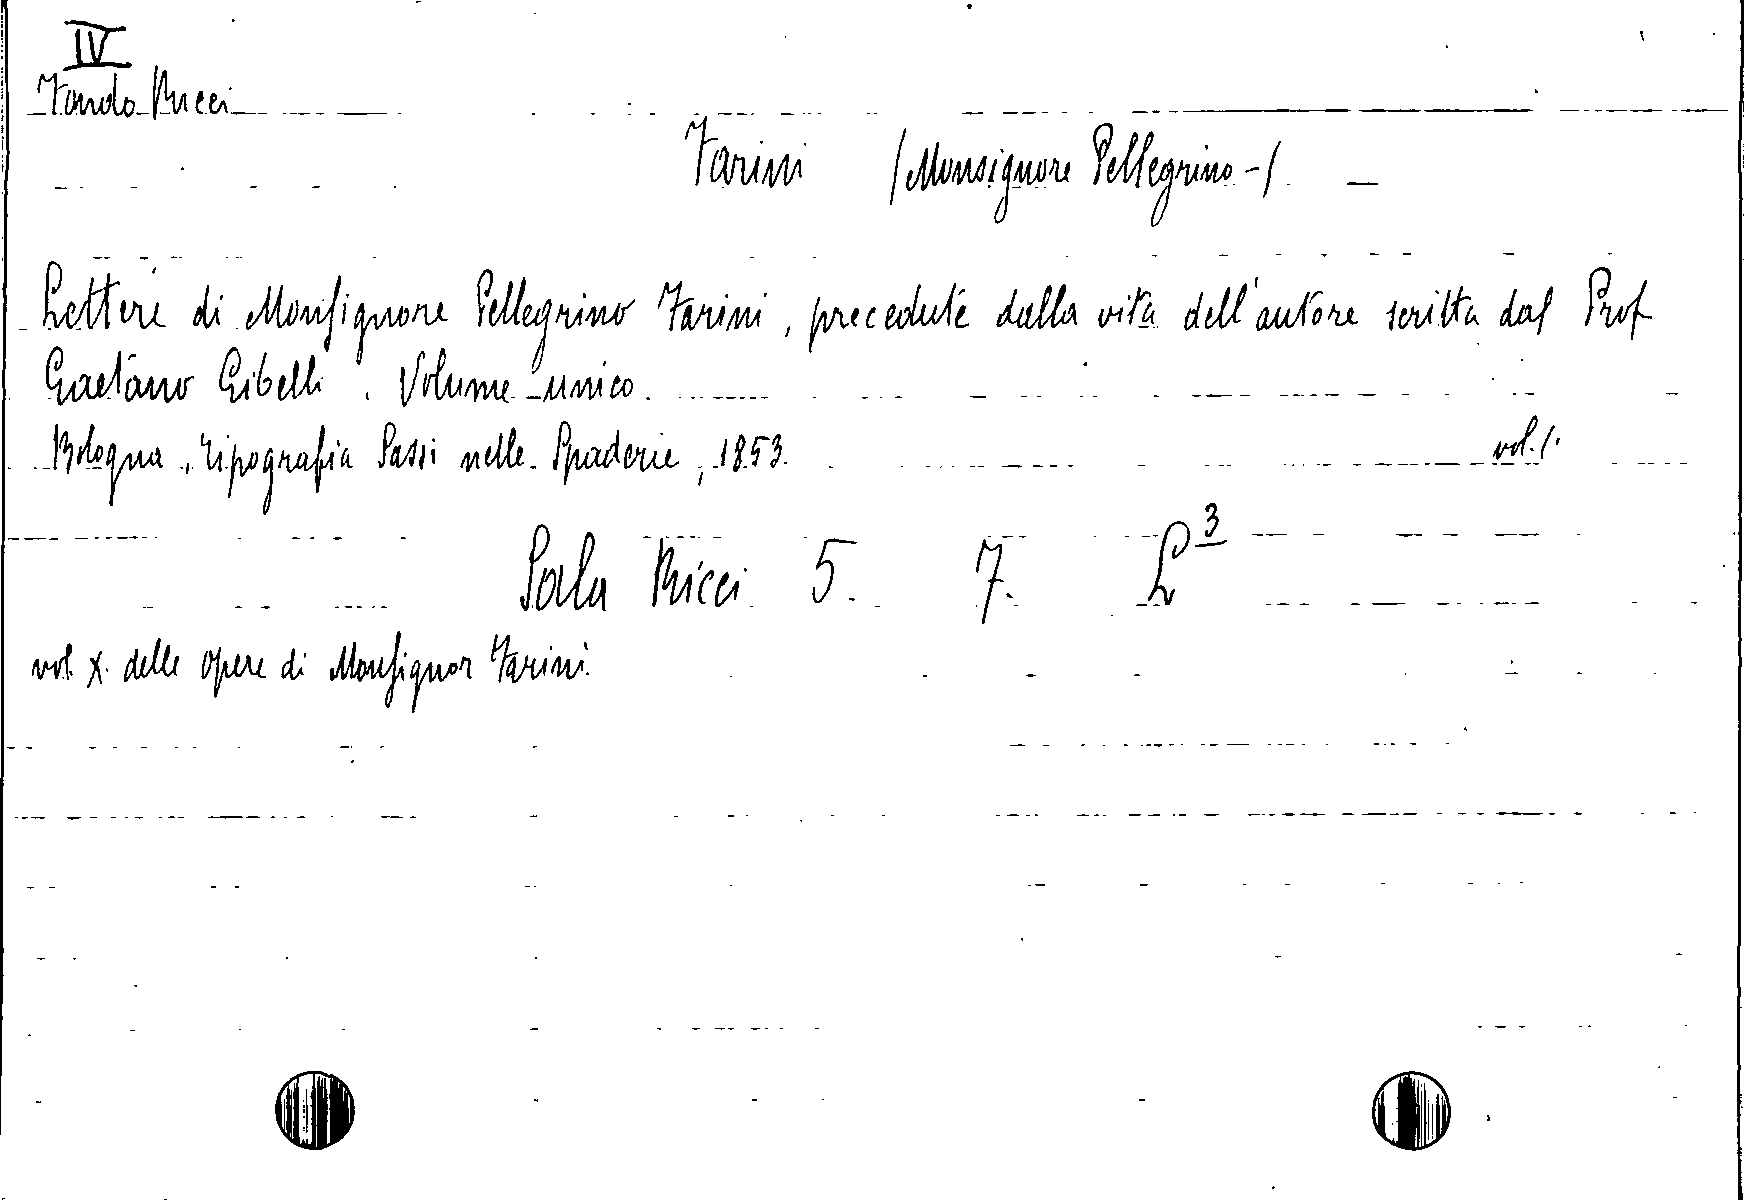 IV
Fondo Ricci
Farini (Monsignore Pellegrino -) —
Lettere di Monsignore Pellegrino Farini, precedute dalla vita dell'autore scritta dal Prof
Gaetano Gibelli. Volume unico.
Bologna, Tipografia Sassi nelle Spaderie, 1853. vol. 1.
Sala Ricci 5. 7. L 3
vol. X. delle opere di Monsignor Farini.